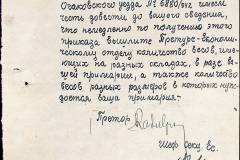 Очаковского уезда № 6880/942 имеем
честь довести до вашего сведения,
что немедленно по получению этого
приказа, вышлите Претуре-Экономи-
ческому отделу количество весов, имею-
щих на разных складах, в разе ва-
шей примарии, а также количество
весов разных размеров в которых нуж-
дается ваша примария.
Претор
Шеф Секц. Ек.